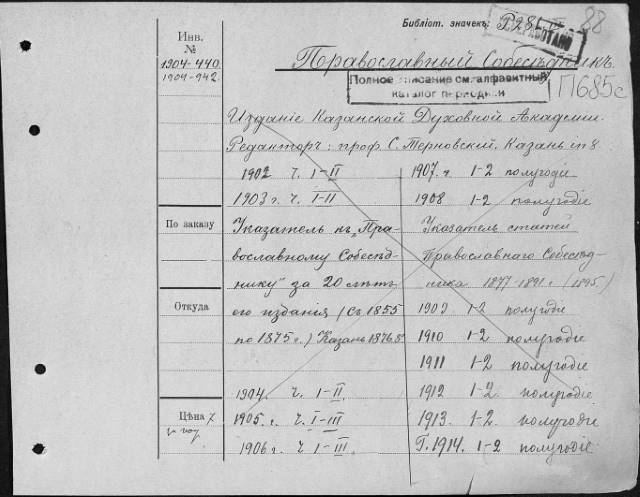 Библіот. значекъ:
88
Инв.
№
1904-440
1904-942
Православный Собесѣдникъ.
Полное описание см. алфавитный
каталог периодики
П685с
Изданіе Казанской Духовной Академіи.
Редакторъ: проф. С. Терновский. Казань in 8.
1902 ч. I-II
1903 г. ч. I-II
По заказу
Указатель къ „Пра-
вославному Собесѣд-
нику" за 20 лѣтъ
Откуда
его изданія (съ 1855
по 1875 г.) Казань 1876. 8°
1904. ч. I-II.
Цѣна
1905. г. ч. I-III
1906 г. ч I-III
1907. г 1-2 полугодіе
1908 1-2 полугодіе
Указатель статей
Православнаго Собесѣд-
ника 1877-1891 г. (1895)
1909 1-2 полугодіе
1910 1-2 полугодіе
1911 1-2 полугодіе
1912 1-2 полугодіе
1913. 1-2. полугодіе
Г. 1914. 1-2 полугодіе